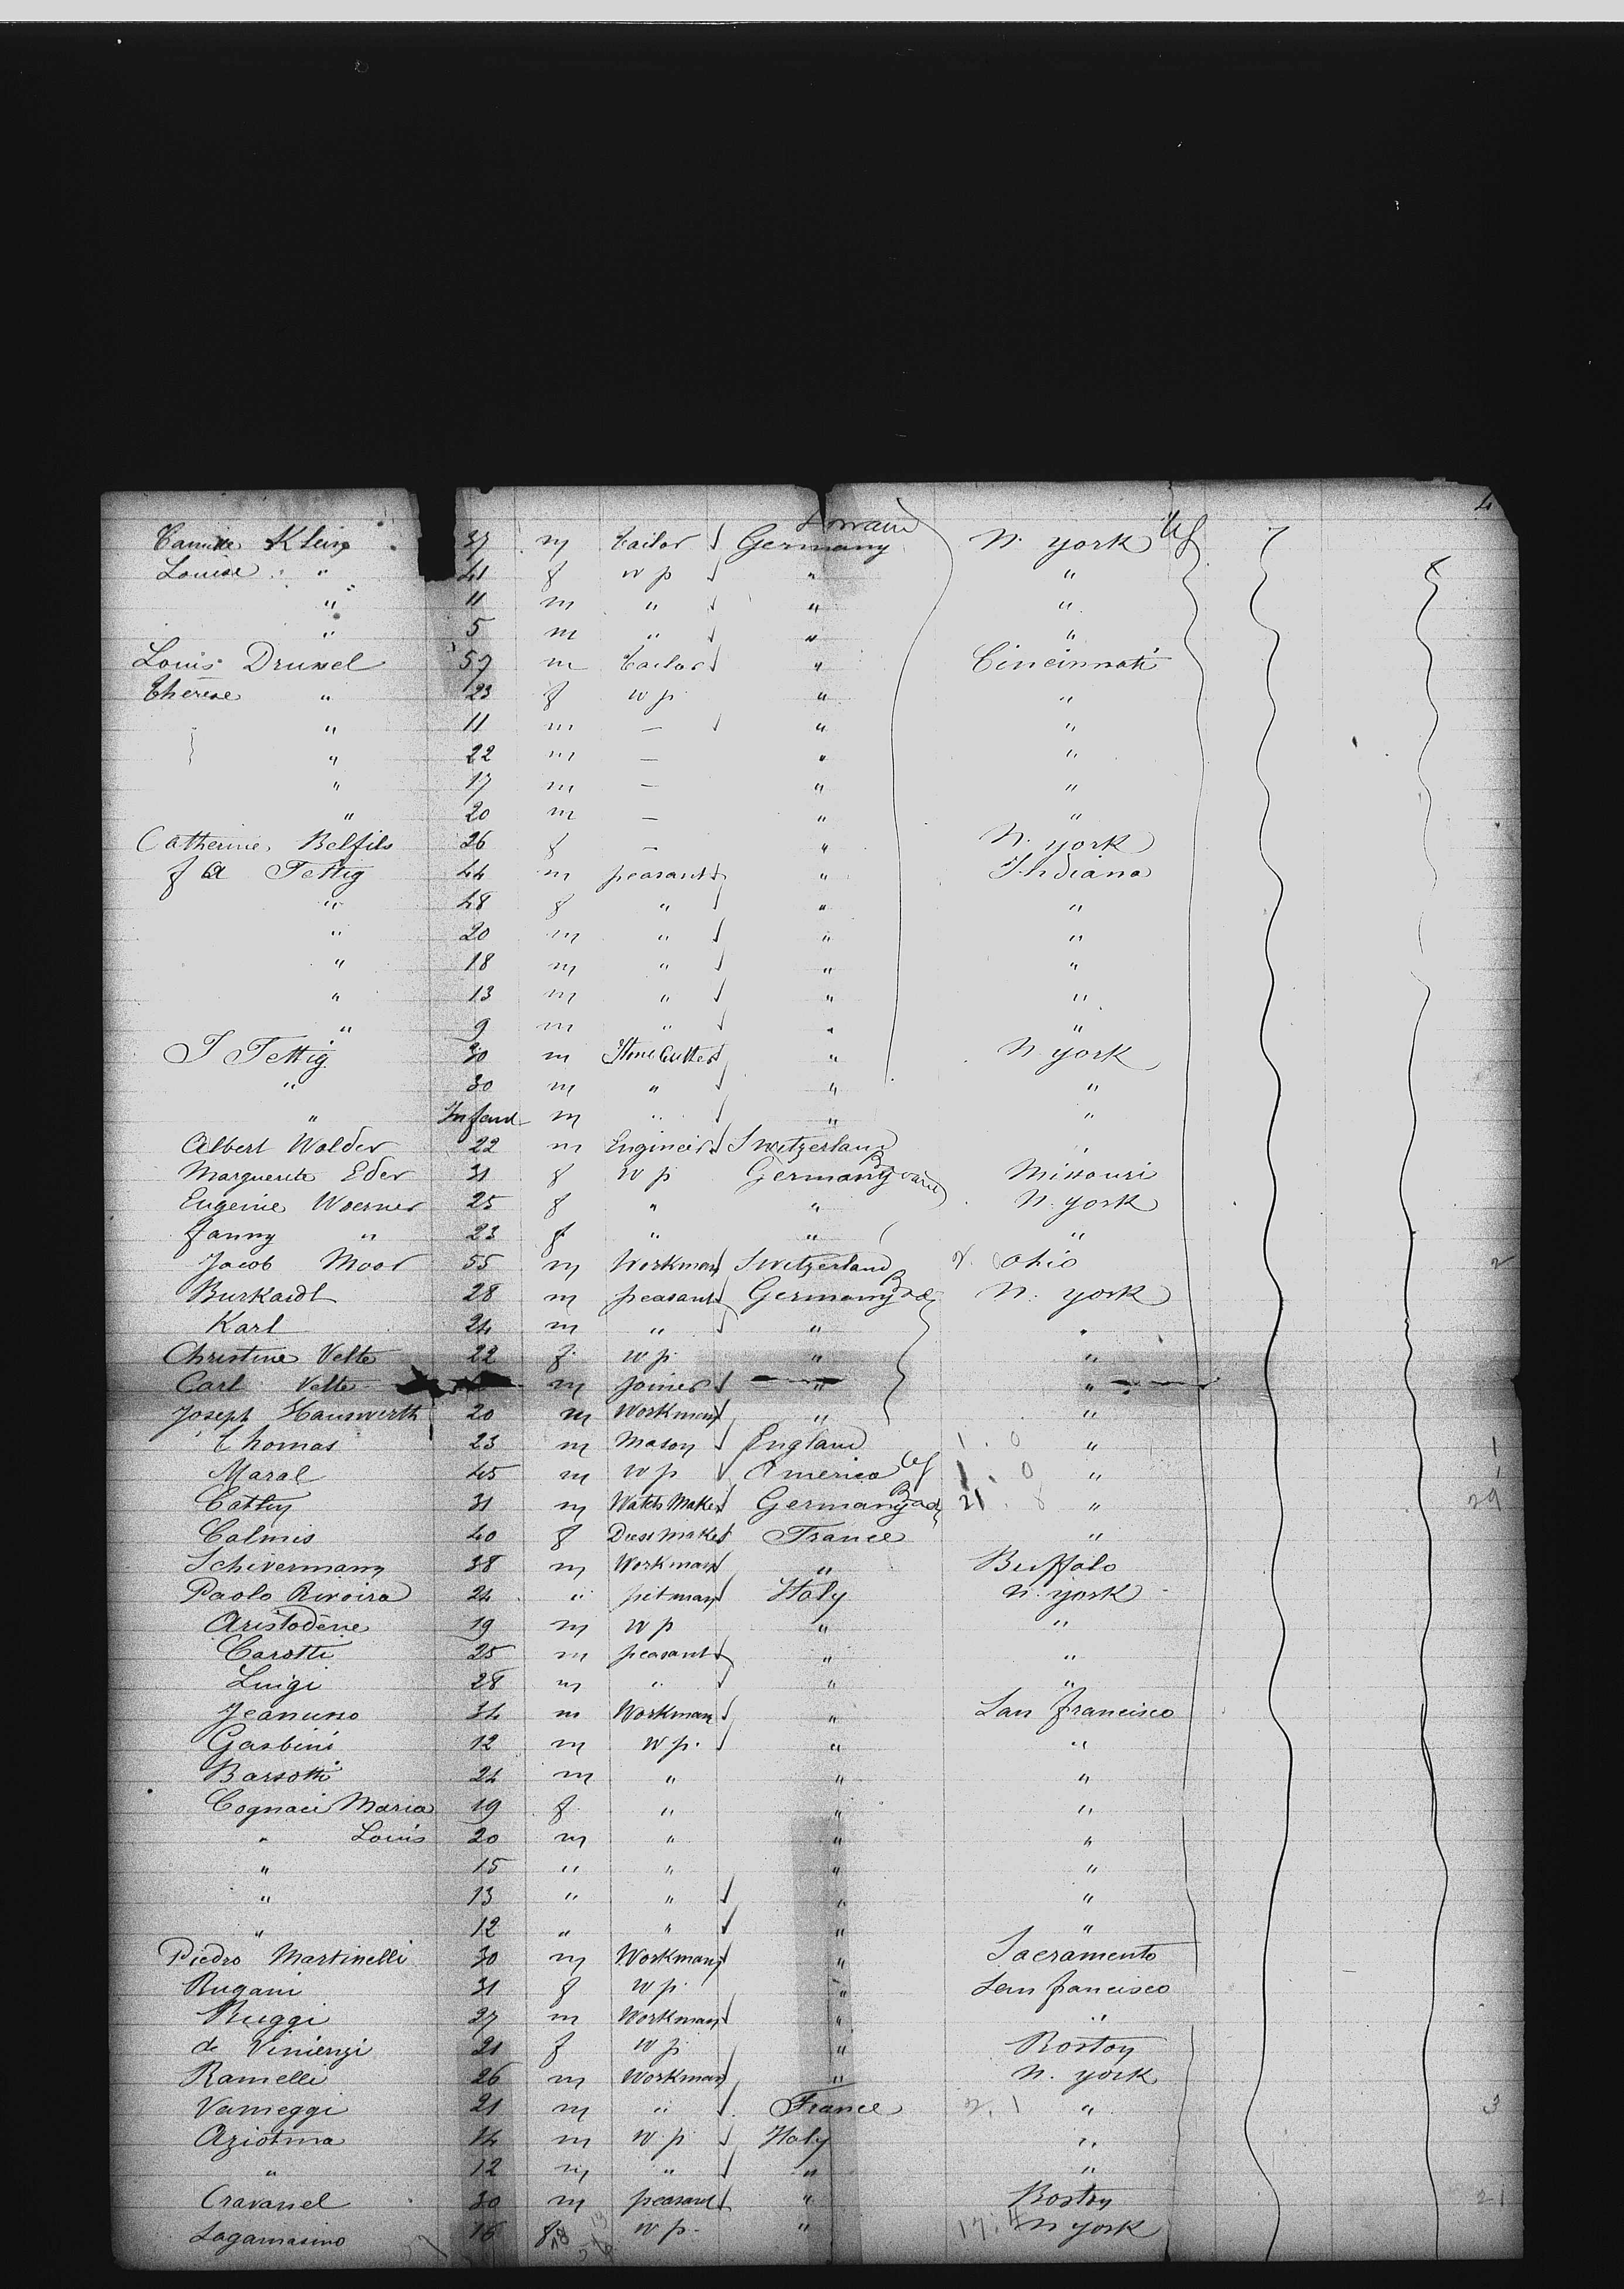 4
Lorraine
Camille Klein 37 m tailor Germany N. york
Louise " 41 f w p " "
" 11 m " " "
" 5 m " " "
Louis Drussel 57 m tailor " Cincinnati
Therese " 23 f w p " "
" 11 m — " "
" 22 m — " "
" 17 m — " "
" 20 m — " "
Catherine Belfils 26 f — " N. york
f a Fettig 44 m peasant " Indiana
" 48 f " " "
" 20 m " " "
" 18 m " " "
" 13 m " " "
" 9 m " " "
J Fettig 30 m Stone Cutter " N york
" 30 m " " "
" Infant m " " "
Albert Walder 22 m Engineer Switzerland "
Marguerite Eder 31 f w p Germany Missouri
Eugenie Woerner 25 f " " N. york
fanny " 23 f " " "
Jacob Moor 55 m Workman Switzerland Ohio 2
Burkardt 28 m peasant Germany N. york
Karl 24 m " " "
Christine Velte 22 f w p " "
Carl Velte m Joiner " "
Joseph Hauswerth 20 m Workman " "
Thomas 23 m Mason England 1 . 0 " 1
Maral 45 m w p America 1 . 0 " 1
Cathy 31 m Watch Maker Germany Bad 21 . 8 " 29
Calmis 40 f Dress Maker France "
Schivermann 38 m Workman " Buffalo
Paolo Rivoira 24 " pitman Italy N. york
Aristodene 19 m w p " "
Carotti 25 m peasant " "
Luigi 28 m " " "
Jeanuno 34 m Workman " San francisco
Garbini 12 m w p. " "
Barsotti 24 m " " "
Cognaci Maria 19 f " " "
" Louis 20 m " " "
" 15 " " " "
" 13 " " " "
" 12 " " " "
Piedro Martinelli 30 m Workman " Sacramento
Rugani 31 f w p " San francisco
Ruggi 27 m Workman " "
de Vinienzi 21 f w p " Boston
Ramelli 26 m Workman " N. york
Vameggi 21 m " France 2. 1 " 3
Aziotina 14 m w p Italy "
" 12 m " " "
Cravassel 30 m peasant " Boston 21
Lagamasino 16 f w p. " 17. 4 N york